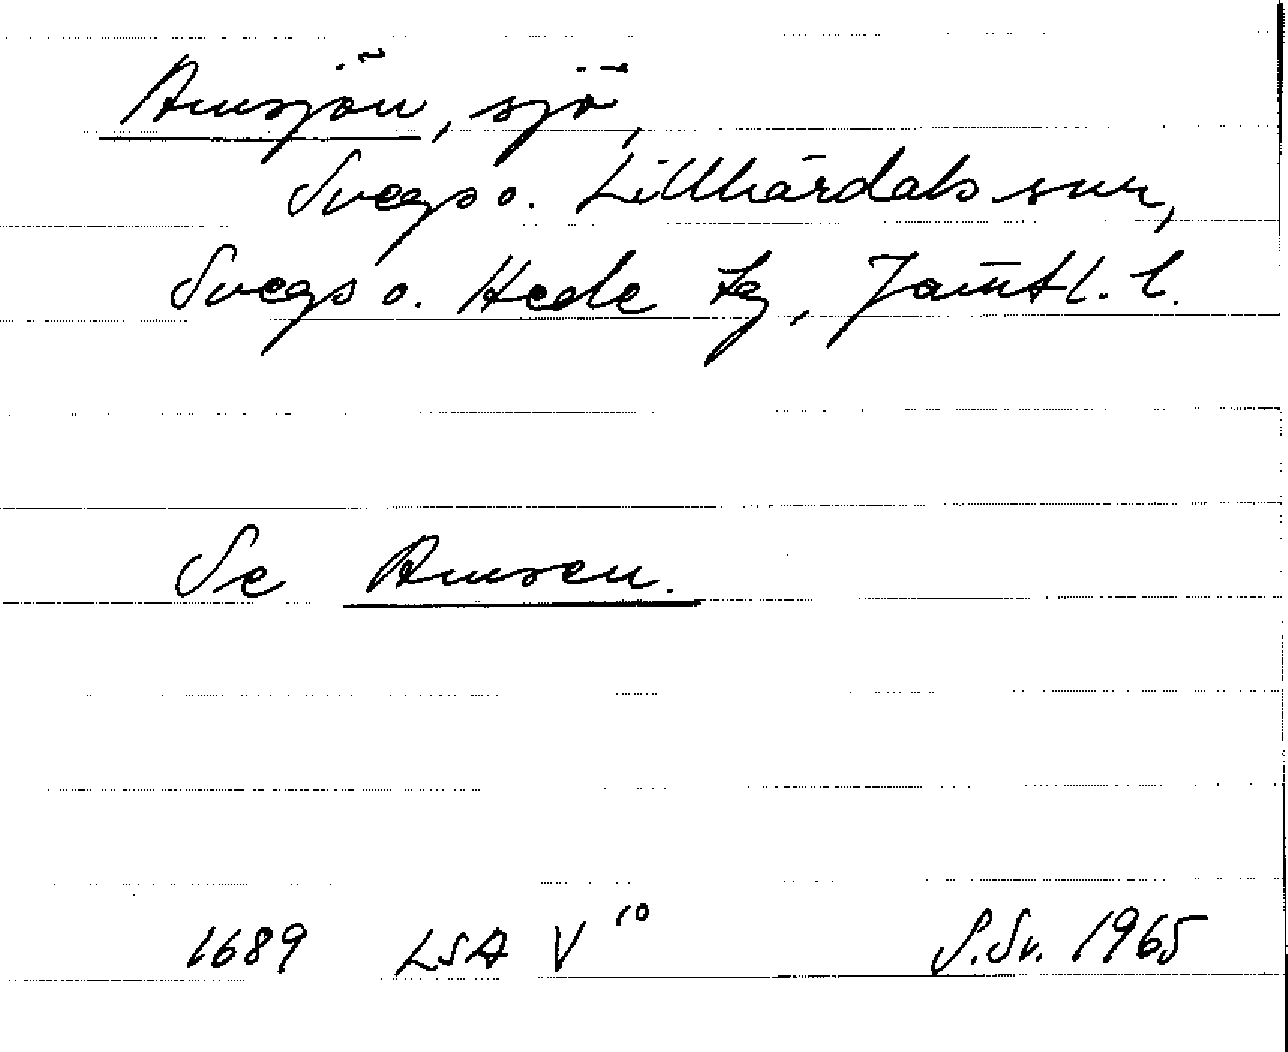 Amsjön, sjö,
Svegs o. Lillhärdals snr,
Svegs o. Hede tg, Jämtl. l.
Se Amsen.
1689 LSA V 10 S.Sv. 1965